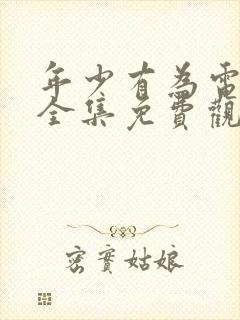 年少有為電
全集免費觀
密實姑娘